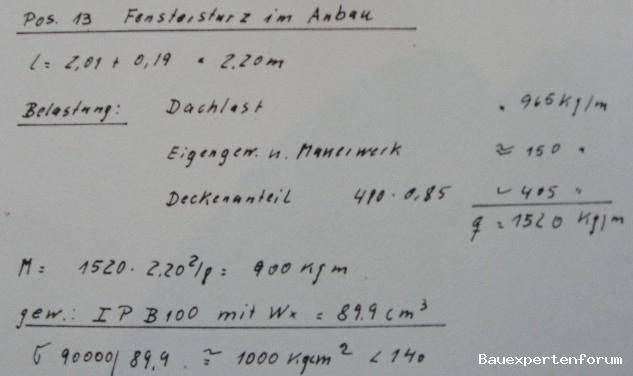 Pos. 13 Fenstersturz im Anbau
l = 2,01 + 0,19 = 2.20m
Belastung: Dachlast = 965 Kg/m
Eigengew. u. Mauerwerk ≈ 150 "
Deckenanteil 490 · 0,85 ~ 405 "
q = 1520 Kg/m
M = 1520 · 2.20²/8 = 900 Kgm
gew.: I P B 100 mit Wx = 89.9 cm³
σ 90000/89,9 ≈ 1000 Kg/cm² < 140
Bauexpertenforum